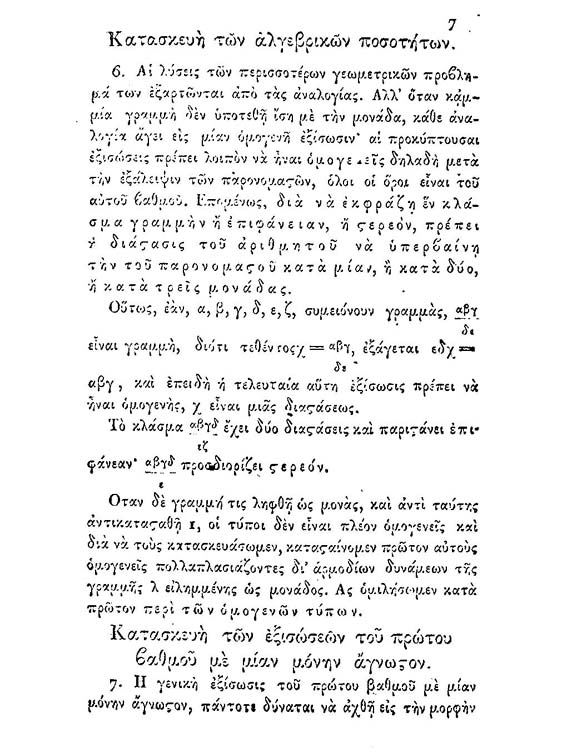 7
Κατασκευὴ τῶν ἀλγεβρικῶν ποσοτήτων.
6. Αἱ λύσεις τῶν περισσοτέρων γεωμετρικῶν προβλη-
μά των ἐξαρτῶνται ἀπὸ τὰς ἀναλογίας. Αλλ' ὅταν κάμ-
μία γραμμὴ δὲν ὑποτεθῇ ἴση μὲ τὴν μονάδα, κάθε ἀνα-
λογία ἄγει εἰς μίαν ὁμογενῆ ἐξίσωσιν· αἱ προκύπτουσαι
ἐξισώσεις πρέπει λοιπὸν νὰ ᾖναι ὁμογενεῖς δηλαδὴ μετὰ
τὴν ἐξάλειψιν τῶν παρονομαϛῶν, ὅλοι οἱ ὅροι εἶναι τοῦ
αὐτοῦ βαθμοῦ. Επομένως, διὰ νὰ ἐκφράζῃ ἓν κλά-
σμα γραμμὴν ἢ ἐπιφάνειαν, ἢ ϛερεὸν, πρέπει
ἡ διάϛασις τοῦ ἀριθμητοῦ νὰ ὑπερβαίνῃ
τὴν τοῦ παρονομαϛοῦ κατὰ μίαν, ἢ κατὰ δύο,
ἢ κατὰ τρεῖς μονάδας.
Οὕτως, ἐὰν, α, β, γ, δ, ε, ζ, συμειόνουν γραμμὰς, αβγ
δε
εἶναι γραμμὴ, διότι τεθέντος χ = αβγ, ἐξάγεται εδχ =
δε
αβγ, καὶ ἐπειδὴ ἡ τελευταία αὕτη ἐξίσωσις πρέπει νὰ
ᾖναι ὁμογενὴς, χ εἶναι μιᾶς διαϛάσεως.
Τὸ κλάσμα αβγδ ἔχει δύο διαϛάσεις καὶ παριϛάνει ἐπι-
εζ
φάνεαν· αβγδ προσδιορίζει ϛερεόν.
ε
Οταν δὲ γραμμή τις ληφθῇ ὡς μονὰς, καὶ ἀντὶ ταύτης
ἀντικαταϛαθῇ 1, οἱ τύποι δὲν εἶναι πλέον ὁμογενεῖς καὶ
διὰ νὰ τοὺς κατασκευάσωμεν, καταϛαίνομεν πρῶτον αὐτοὺς
ὁμογενεῖς πολλαπλασιάζοντες δι' ἁρμοδίων δυνάμεων τῆς
γραμμῆς λ εἰλημμένης ὡς μονάδος. Ας ὁμιλήσωμεν κατὰ
πρῶτον περὶ τῶν ὁμογενῶν τύπων.
Κατασκευὴ τῶν ἐξισώσεῶν τοῦ πρώτου
βαθμοῦ μὲ μίαν μόνην ἄγνωϛον.
7. Η γενικὴ ἐξίσωσις τοῦ πρώτου βαθμοῦ μὲ μίαν
μόνην ἄγνωϛον, πάντοτε δύναται νὰ ἀχθῇ εἰς τὴν μορφὴν